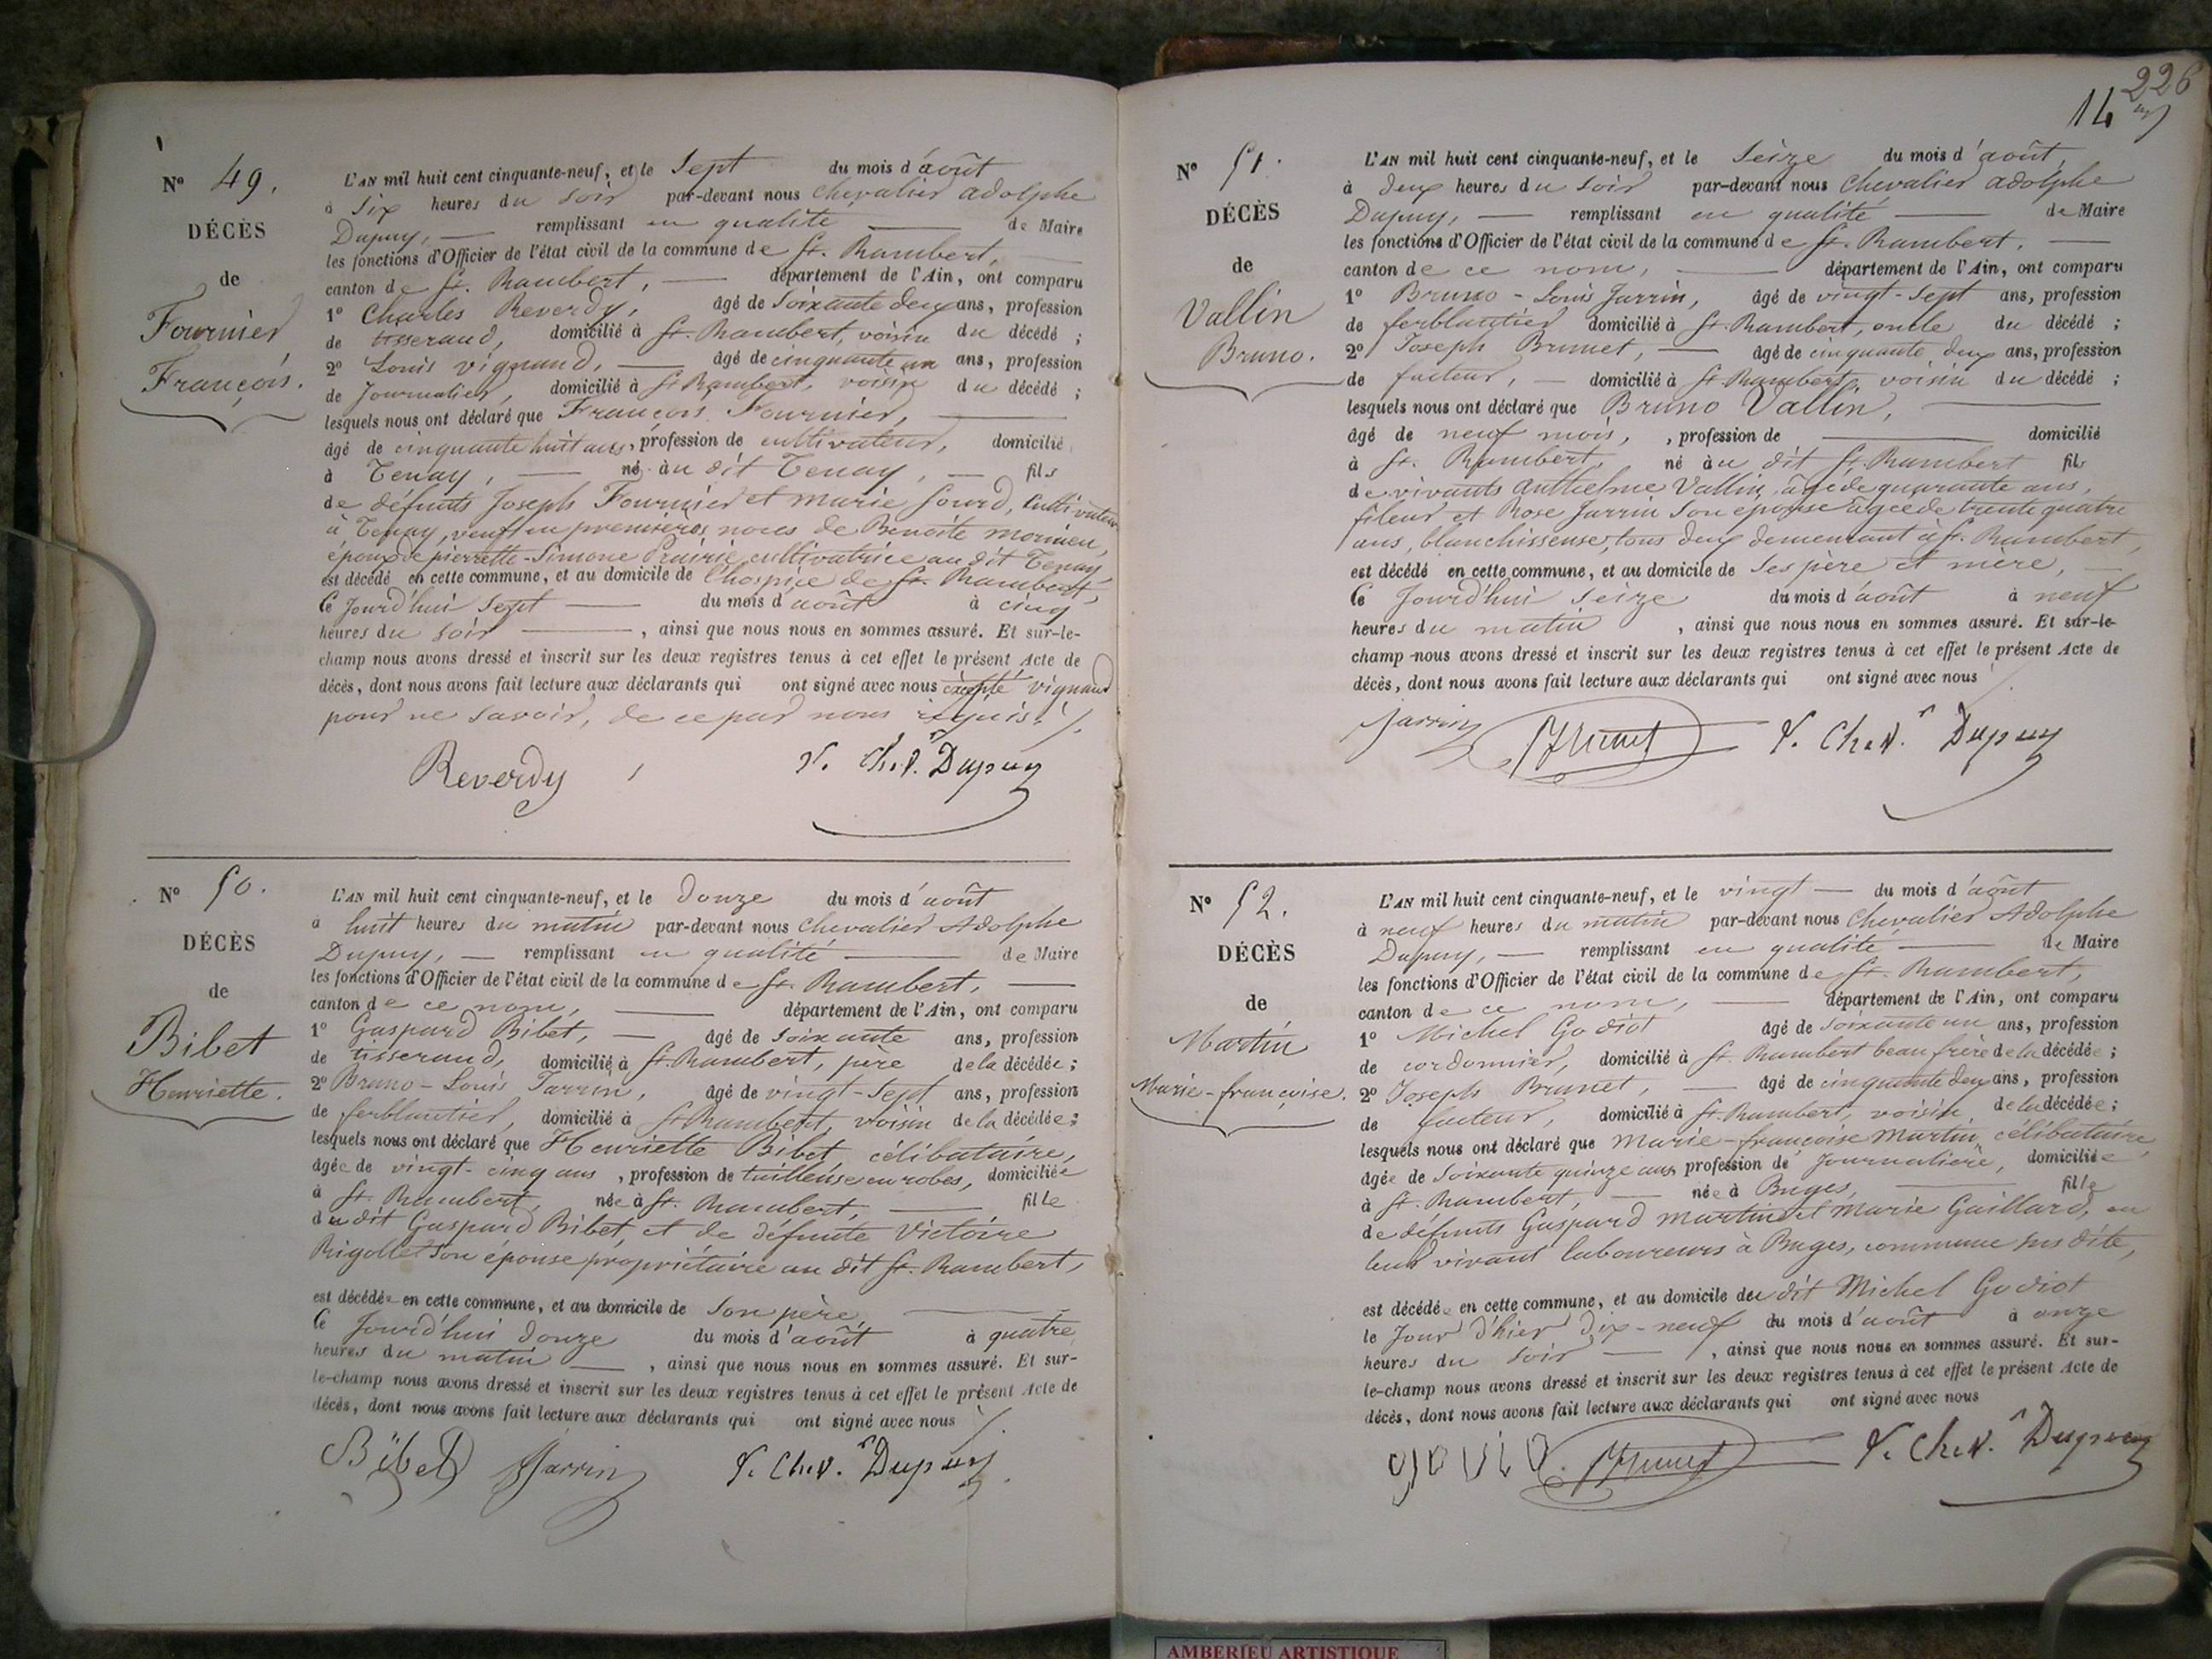 Nº 49.
DÉCÈS
de
Fournier
François.
L'AN mil huit cent cinquante-neuf, et le Sept du mois d'août
à Six heures du soir par-devant nous Chevalier Adolphe
Dupuy, remplissant en qualité de Maire
les fonctions d'Officier de l'état civil de la commune de St. Rambert,
canton de St. Rambert, département de l'Ain, ont comparu
1º Charles Reverdy, âgé de Soixante deux ans, profession
de tisserand, domicilié à St. Rambert, voisin du décédé ;
2º Louis Vignand, âgé de cinquante un ans, profession
de Journalier, domicilié à St Rambert, voisin du décédé ;
lesquels nous ont déclaré que François Fournier,
âgé de cinquante huit ans, profession de cultivateur, domicilié
à Tenay, né au dit Tenay, fils
de défunts Joseph Fournier et Marie Sourd, Cultivateurs
à Tenay, veuf en premières noces de Benoite
époux de pierrette-Simone Prairie, cultivatrice au dit Tenay
est décédé en cette commune, et au domicile de l'hospice de St. Rambert
le Jourd'hui Sept du mois d'août à cinq
heures du soir, ainsi que nous nous en sommes assuré. Et sur-le-
champ nous avons dressé et inscrit sur les deux registres tenus à cet effet le présent Acte de
décès, dont nous avons fait lecture aux déclarants qui ont signé avec nous excepté Vignand
pour ne savoir, de ce par nous requis ./.
Reverdy V. Chev.r Dupuy
Nº 50.
DÉCÈS
de
Bibet
Henriette.
L'AN mil huit cent cinquante-neuf, et le Douze du mois d'août
à huit heures du matin par-devant nous Chevalier Adolphe
Dupuy, remplissant en qualité de Maire
les fonctions d'Officier de l'état civil de la commune de St. Rambert,
canton de ce nom, département de l'Ain, ont comparu
1º Gaspard Bibet, âgé de Soixante ans, profession
de tisserand, domicilié à St. Rambert, père de la décédée ;
2º Bruno-Louis Jarrin, âgé de vingt-Sept ans, profession
de ferblantier, domicilié à St Rambert, voisin de la décédée ;
lesquels nous ont déclaré que Henriette Bibet célibataire,
âgée de vingt-cinq ans, profession de tailleuse en robes, domiciliée
à St. Rambert, née à St. Rambert, fille
du dit Gaspard Bibet, et de défunte Victoire
Rigollet son épouse propriétaire au dit St. Rambert,
est décédée en cette commune, et au domicile de Son père,
le Jourd'hui Douze du mois d'août à quatre
heures du matin, ainsi que nous nous en sommes assuré. Et sur-
le-champ nous avons dressé et inscrit sur les deux registres tenus à cet effet le présent Acte de
décès, dont nous avons fait lecture aux déclarants qui ont signé avec nous ./.
Bibet Jarrin V. Chev.r Dupuy
226
14
Nº 51.
DÉCÈS
de
Vallin
Bruno.
L'AN mil huit cent cinquante-neuf, et le Seize du mois d'août,
à deux heures du soir par-devant nous Chevalier Adolphe
Dupuy, remplissant en qualité de Maire
les fonctions d'Officier de l'état civil de la commune de St. Rambert,
canton de ce nom, département de l'Ain, ont comparu
1º Bruno-Louis Jarrin, âgé de vingt-Sept ans, profession
de ferblantier domicilié à St. Rambert, oncle du décédé ;
2º Joseph Brunet, âgé de cinquante deux ans, profession
de facteur, domicilié à St. Rambert, voisin du décédé ;
lesquels nous ont déclaré que Bruno Vallin,
âgé de neuf mois, , profession de domicilié
à St. Rambert, né au dit St. Rambert fils
de vivants Anthelme Vallin, âgé de quarante ans,
fileur et Rose Jarrin Son épouse âgée de trente quatre
ans, blanchisseuse, tous deux demeurant à St. Rambert,
est décédé en cette commune, et au domicile de Ses père et mère,
le Jourd'hui Seize du mois d'août à neuf
heures du matin, ainsi que nous nous en sommes assuré. Et sur-le-
champ nous avons dressé et inscrit sur les deux registres tenus à cet effet le présent Acte de
décès, dont nous avons fait lecture aux déclarants qui ont signé avec nous ./.
Jarrin Brunet V. Chev.r Dupuy
Nº 52.
DÉCÈS
de
Martin
Marie-françoise.
L'AN mil huit cent cinquante-neuf, et le vingt du mois d'août
à neuf heures du matin par-devant nous Chevalier Adolphe
Dupuy, remplissant en qualité de Maire
les fonctions d'Officier de l'état civil de la commune de St. Rambert,
canton de ce nom, département de l'Ain, ont comparu
1º Michel Godiot âgé de Soixante un ans, profession
de cordonnier, domicilié à St. Rambert beau frère de la décédée ;
2º Joseph Brunet, âgé de cinquante deux ans, profession
de facteur, domicilié à St. Rambert, voisin de la décédée ;
lesquels nous ont déclaré que Marie-françoise Martin, célibataire,
âgée de Soixante quinze ans, profession de Journalière, domiciliée
à St. Rambert, née à Buges, fille
de défunts Gaspard Martin et Marie Gaillard, en
leur vivant laboureurs à Buges, commune sus dite,
est décédée en cette commune, et au domicile du dit Michel Godiot
le Jour d'hier dix-neuf du mois d'août à onze
heures du soir, ainsi que nous nous en sommes assuré. Et sur-
le-champ nous avons dressé et inscrit sur les deux registres tenus à cet effet le présent Acte de
décès, dont nous avons fait lecture aux déclarants qui ont signé avec nous
Brunet V. Chev.r Dupuy
AMBERIEU ARTISTIQUE